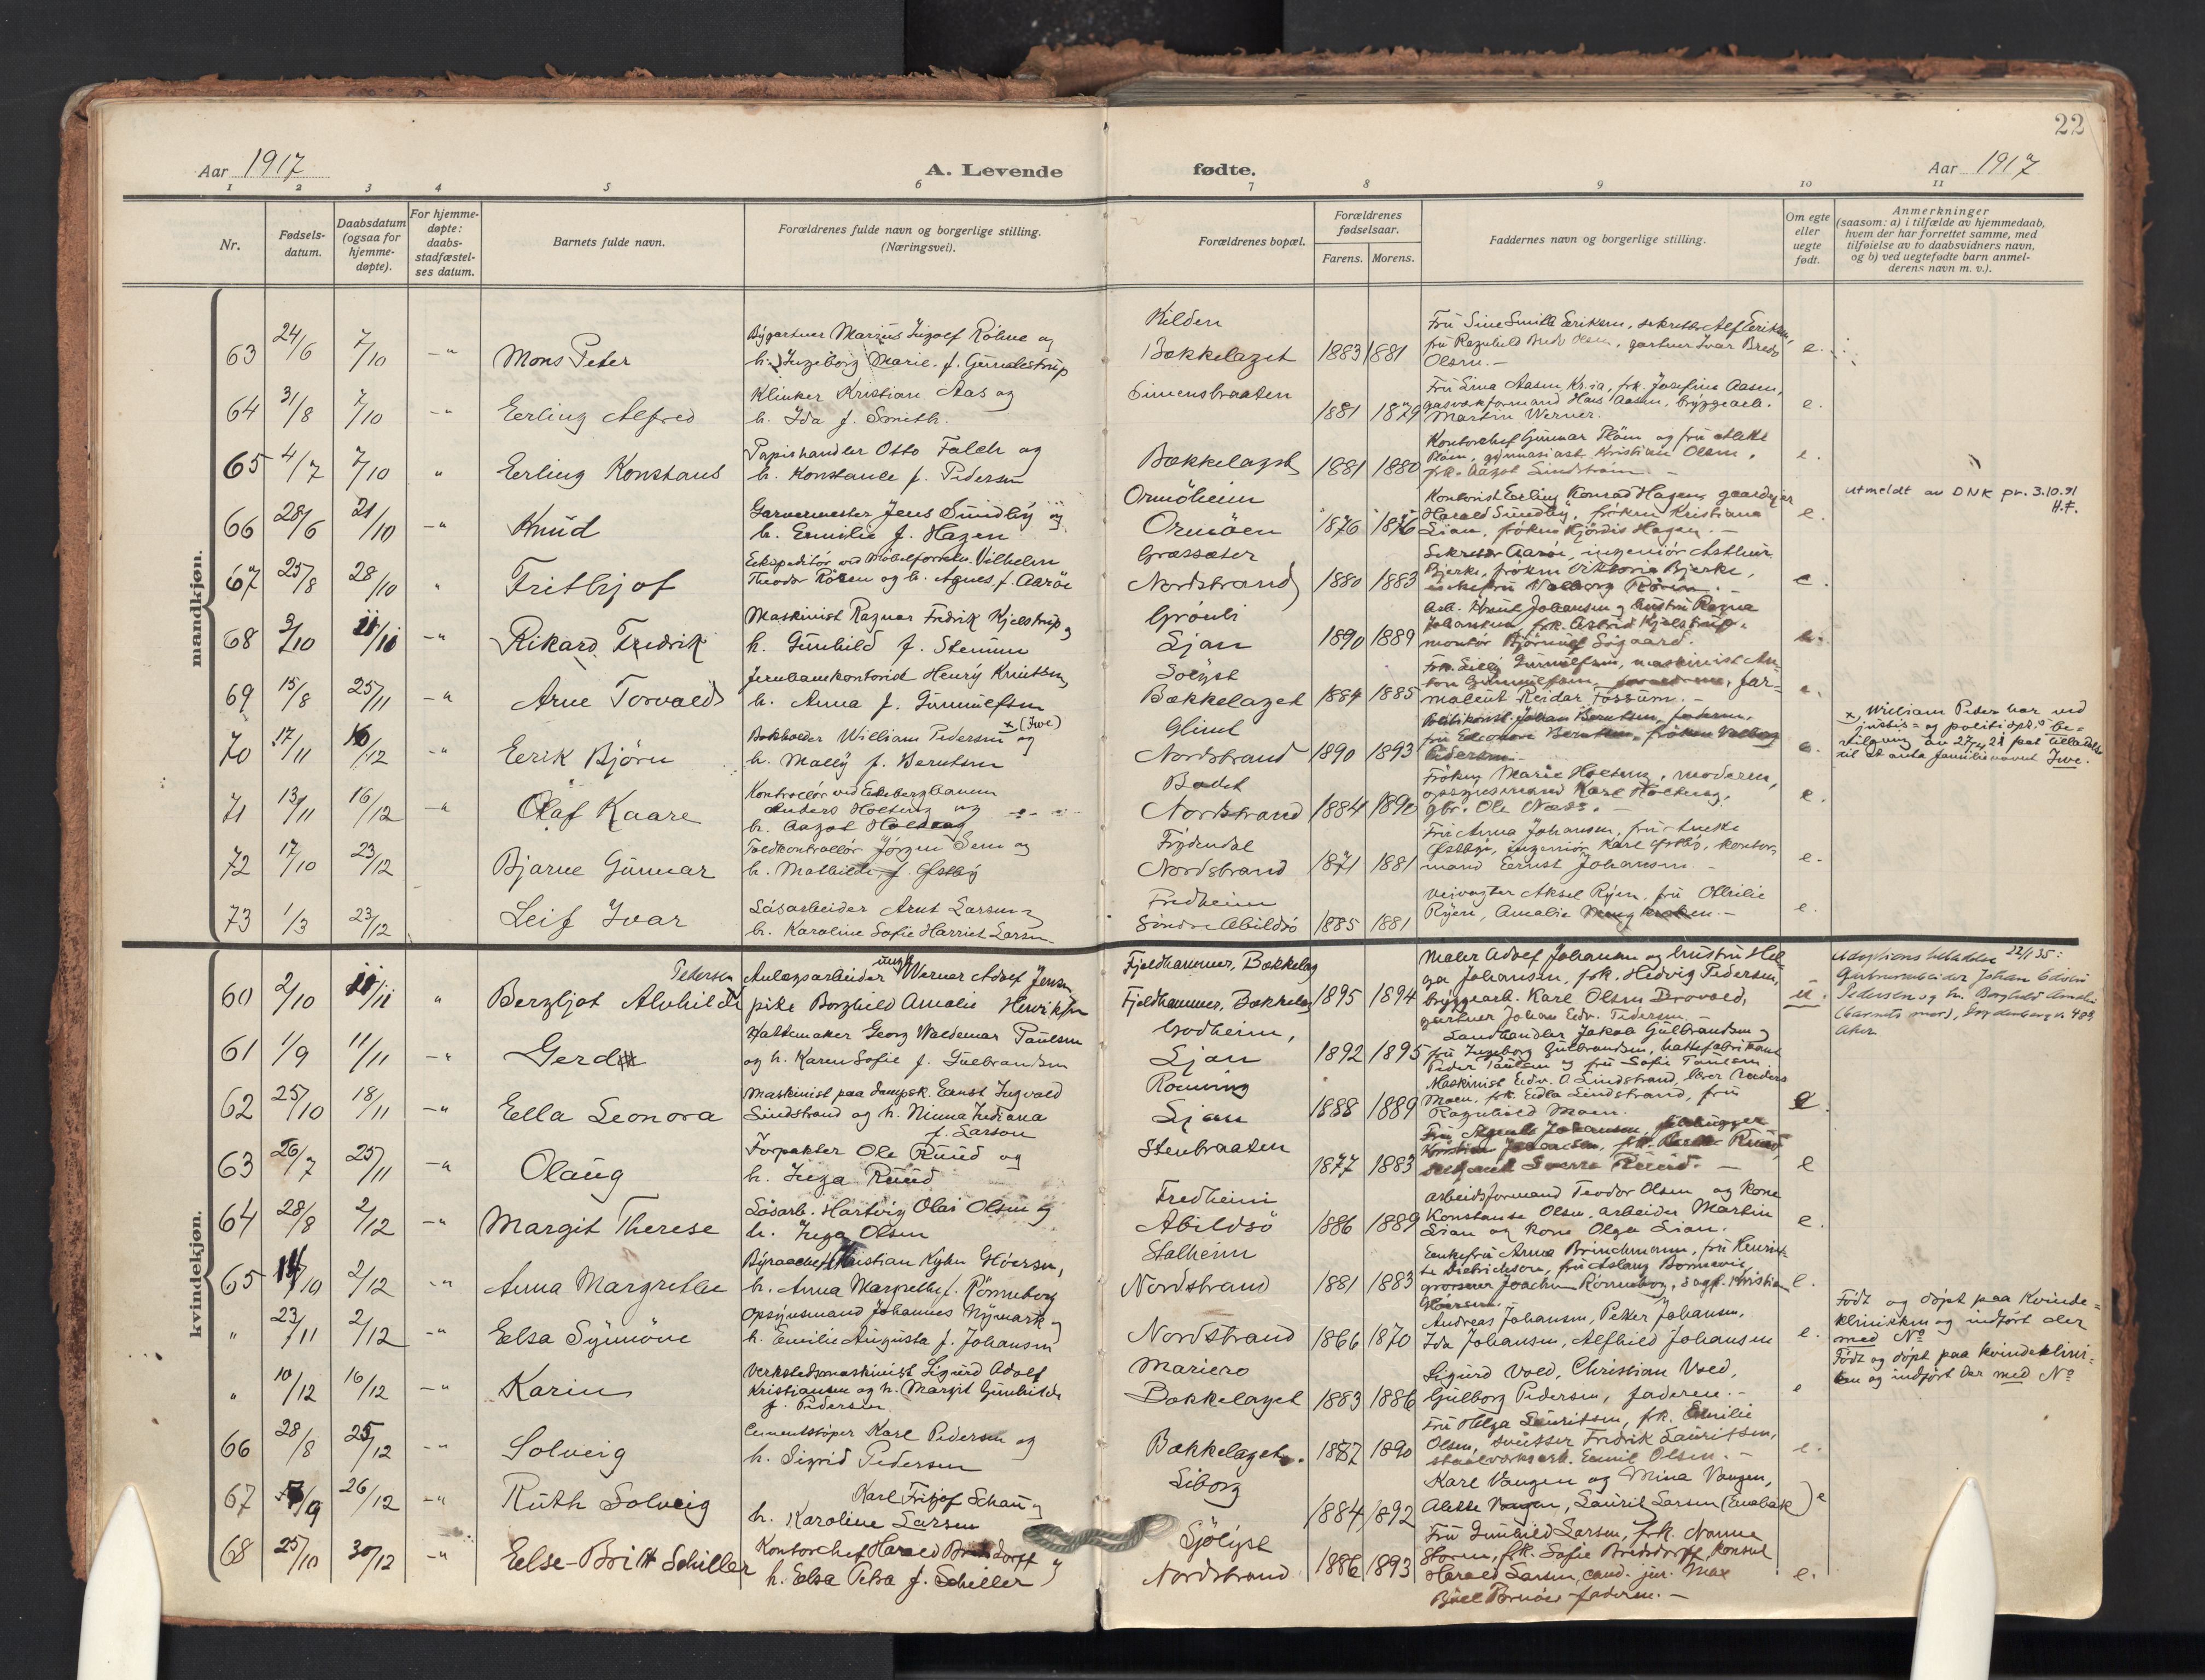 22
Aar 1917
A. Levende
fødte.
Aar 1917
1 2 3 4 5 6 7 8 9 10 11
Nr.
Fødsels-
datum.
Daabsdatum
(ogsaa for
hjemme-
døpte).
For hjemme-
døpte:
daabs-
stadfæstel-
ses datum.
Barnets fulde navn.
Forældrenes fulde navn og borgerlige stilling.
(Næringsvei).
Forældrenes bopæl.
Forældrenes
fødselsaar.
Farens. Morens.
Faddernes navn og borgerlige stilling.
Om egte
eller
uegte
født.
Anmerkninger
(saasom: a) i tilfælde av hjemmedaab,
hvem der har forrettet samme, med
tilføielse av to daabsvidners navn,
og b) ved uegtefødte barn anmel-
derens navn m. v.).
mandkjøn.
63 24/6 7/10 -"- Mons Peter
Bygartner Marius Ingolf Röhne og
h. Ingeborg Marie f.
Kilden
Bækkelaget 1883 1881
Olsen. -
e.
64 31/8 7/10 -"- Eerling Alfred
Klinker Kristian Aas og
h. Ida f. Smith.
Simensbraaten
1881 1879
Martin Werner.
e.
65 4/7 7/10 " Eerling Konstans
Papirhandler Otto Falch og
h. Konstanse f. Pedersen
Bækkelaget 1881 1880
Kontorchef Gunnar Pläm og fru
Pläm, gymnasiast Kristian Olsen,
e.
66 28/6 21/10 -"- Knud
Garvermester Jens Sundby og
h. Emilie f. Hagen
Ormöheim
Ormöen 1876 1876
Kontorist Eerling Konrad Hagen, gaardejer
Harald Sundby, fröken Kristiane
Lian, fröken Hjördis Hagen
e.
utmeldt av DNK pr. 3.10.91
H.F.
67 25/8 28/10 " Fritbjof
Vilhelm
Theodor Rören og h. Agnes f. Aaröe
Græssæter
Nordstrand 1880 1883
Sekretær Aaröe, ingeniör Asthur
Bjerke, fröken Viktoria Bjerke,
enkefru Valborg Rören. -
e.
68 9/10 11/11 -"- Rikard Fredrik
Maskinist Ragnar Fredrik Kjelstrup og
h. Gunhild f. Stemme
Grönli
Ljan 1890 1889
Arb. Knut Johansen og hustru Ragna
Johansen, frk. Astrid Kjelstrup,
montör Björnulf Sögaard.
69 15/8 25/11 -"- Arne Torvald
Jernbanekontorist Henry Knutsen
h. Anna f. Gunnulfsen
Solyst
Bækkelaget 1884 1885
malent Reidar Fossum. -
e.
70 17/11 16/12 -"- Eerik Björn
Bokholder William Pedersen x (Iwe) og
h. Mally f. Berntsen
Glimt
Nordstrand 1890 1893
Pedersen
e.
x, William Peder har ved
justis= og politidpt.s be-
vilgning av 27/4 21 faat tilladelse
til at anta familienavnet Iwe.
71 13/11 16/12 -"- Olaf Kaare
Kontrollör ved Ekebergbanen
Anders Holteng og
h. Aagot Holteng
Badet
Nordstrand 1884 1890
Fröken Marie Holteng, moderen,
opsynsmand Karl Holteng,
gbr. Ole Næss. -
e.
72 17/10 23/12 Bjarne Gunnar
Toldkontrollör Jörgen Sem og
h. Mathilde f. Östby
Frydendal
Nordstrand 1871 1881
Fru Anna Johansen, fru
Östbye, ingeniör Karl Östby, kontor-
mand Eernst Johansen -
e.
73 1/3 23/12 Leif Ivar
Saasarbeider Arnt Larsen og
h. Karoline Sofie Harriet Larsen
Fredheim
Söndre Abildsö 1885 1881
Veivogter Aksel Ryen, fru Othilie
Ryen, Amalie
e.
kvindekjøn.
60 2/10 11/11 " Bergljot Alvhild Pedersen
Anlægsarbeider ungk. Werner Adolf Jensen
pike Borghild Amalie Henriksen
Fjeldhammer, Bækkelag
Fjeldhammer, Bækkelag 1895 1894
Maler Adolf Johansen og hustru Hel-
ga Johansen, frk. Hedvig Pedersen,
bryggearb. Karl Olsen Brovold,
gartner Johan Edv. Pedersen. -
u.
Adoptions bevilling 22/1 35:
Gutuarbeider Johan Edvin
Pedersen og h. Borghild Amalie
(barnets mor),
Aker
61 1/9 11/11 -"- Gerd
Hattemaker Georg Waldemar Paulsen
og h. Karen Sofie f. Gulbrandsen
Godheim,
Ljan 1892 1895
Landhandler Jakob Gulbrandsen og
fru Ingeborg Gulbrandsen, hattefabrikant
Peder Paulsen og fru Sofie Paulsen
62 25/10 18/11 -"- Eella Leonora
Maskinist paa dampsk. Eernst Ingvald
Lindstrand og h. Ninna Indiana
f. Larson
Ljan 1888 1889
Maskinist Edv. A. Lindstrand,
Moen, frk. Edla Lindstrand, fru
Ragnhild Moen.
e.
63 26/7 25/11 -"- Olaug
Forpakter Ole Ruud og
h. Inga Ruud
Stenbraaten
1877 1883
Sverre Ruud. -
e
64 28/8 2/12 -"- Margit Therese
Saasarb. Hartvig Olai Olsen og
h. Inga Olsen
Fredheim
Abildsö 1886 1889
Arbeidsformand Teodor Olsen og kone
Konstanse Olsen, arbeider Martin
Lian og kone Olga Lian.
e.
65 14/10 2/12 -"- Anna Margrethe
Byraachef Kristian Kyhn Höersen,
h. Anna Margrethe f. Rönneborg
Stalheim
Nordstrand 1881 1883
Enkefru Anna Brinchmann, fru Henriet-
te Diedrichson, fru Aslaug Bonnevie,
grosserer Joachim Rönneborg, sagf. Kristian
Höersen. -
e.
" 23/11 2/12 -"- Eelsa Synnöve
Opsynsmand Johannes Nymark og
h. Emilie Augusta f. Johansen
Nordstrand 1866 1870
Andreas Johansen, Petter Johansen,
Ida Johansen, Alfhild Johansen
e.
Födt og döpt paa Kvinde-
klinikken og indfört der
med No
" 10/12 16/12 -"- Karin
Verkstedsmaskinist Sigurd Adolf
Kristiansen og h. Margit Gunhilde
f. Pedersen.
Mariero
Bækkelaget 1883 1886
Sigurd Vold, Christian Vold,
Gulborg Pedersen, faderen. -
e
Födt og döpt paa kvindeklini-
ken og indfört der med No
66 28/8 25/12 -"- Solveig
Cementstöper Karl Pedersen og
h. Sigrid Pedersen
Bækkelaget. 1887 1890
Fru Helga Lauritsen, frk. Emilie
Olsen, sveitser Fredrik Lauritsen,
staalverksarb. Eemil Olsen. -
e.
67 /9 26/12 -"- Ruth Solveig
Karl Fritjof Schau og
h. Karoline Larsen
Liborg
1884 1892
Karl Vangen og Mina Vangen,
Alette Vangen, Laurits Larsen (Enebak)
e
68 25/10 30/12 -"- Eelse-Britt Schiller
Kontorchef Harald Bredsdorff og
h. Eelsa Petra f. Schiller
Sjölyst
Nordstrand 1886 1893
Fru Gunhild Larsen, frk. Nanna
Storm, frk. Sofie Bredsdorff, konsul
Harald Larsen, cand. jur. Max
faderen. -
e.